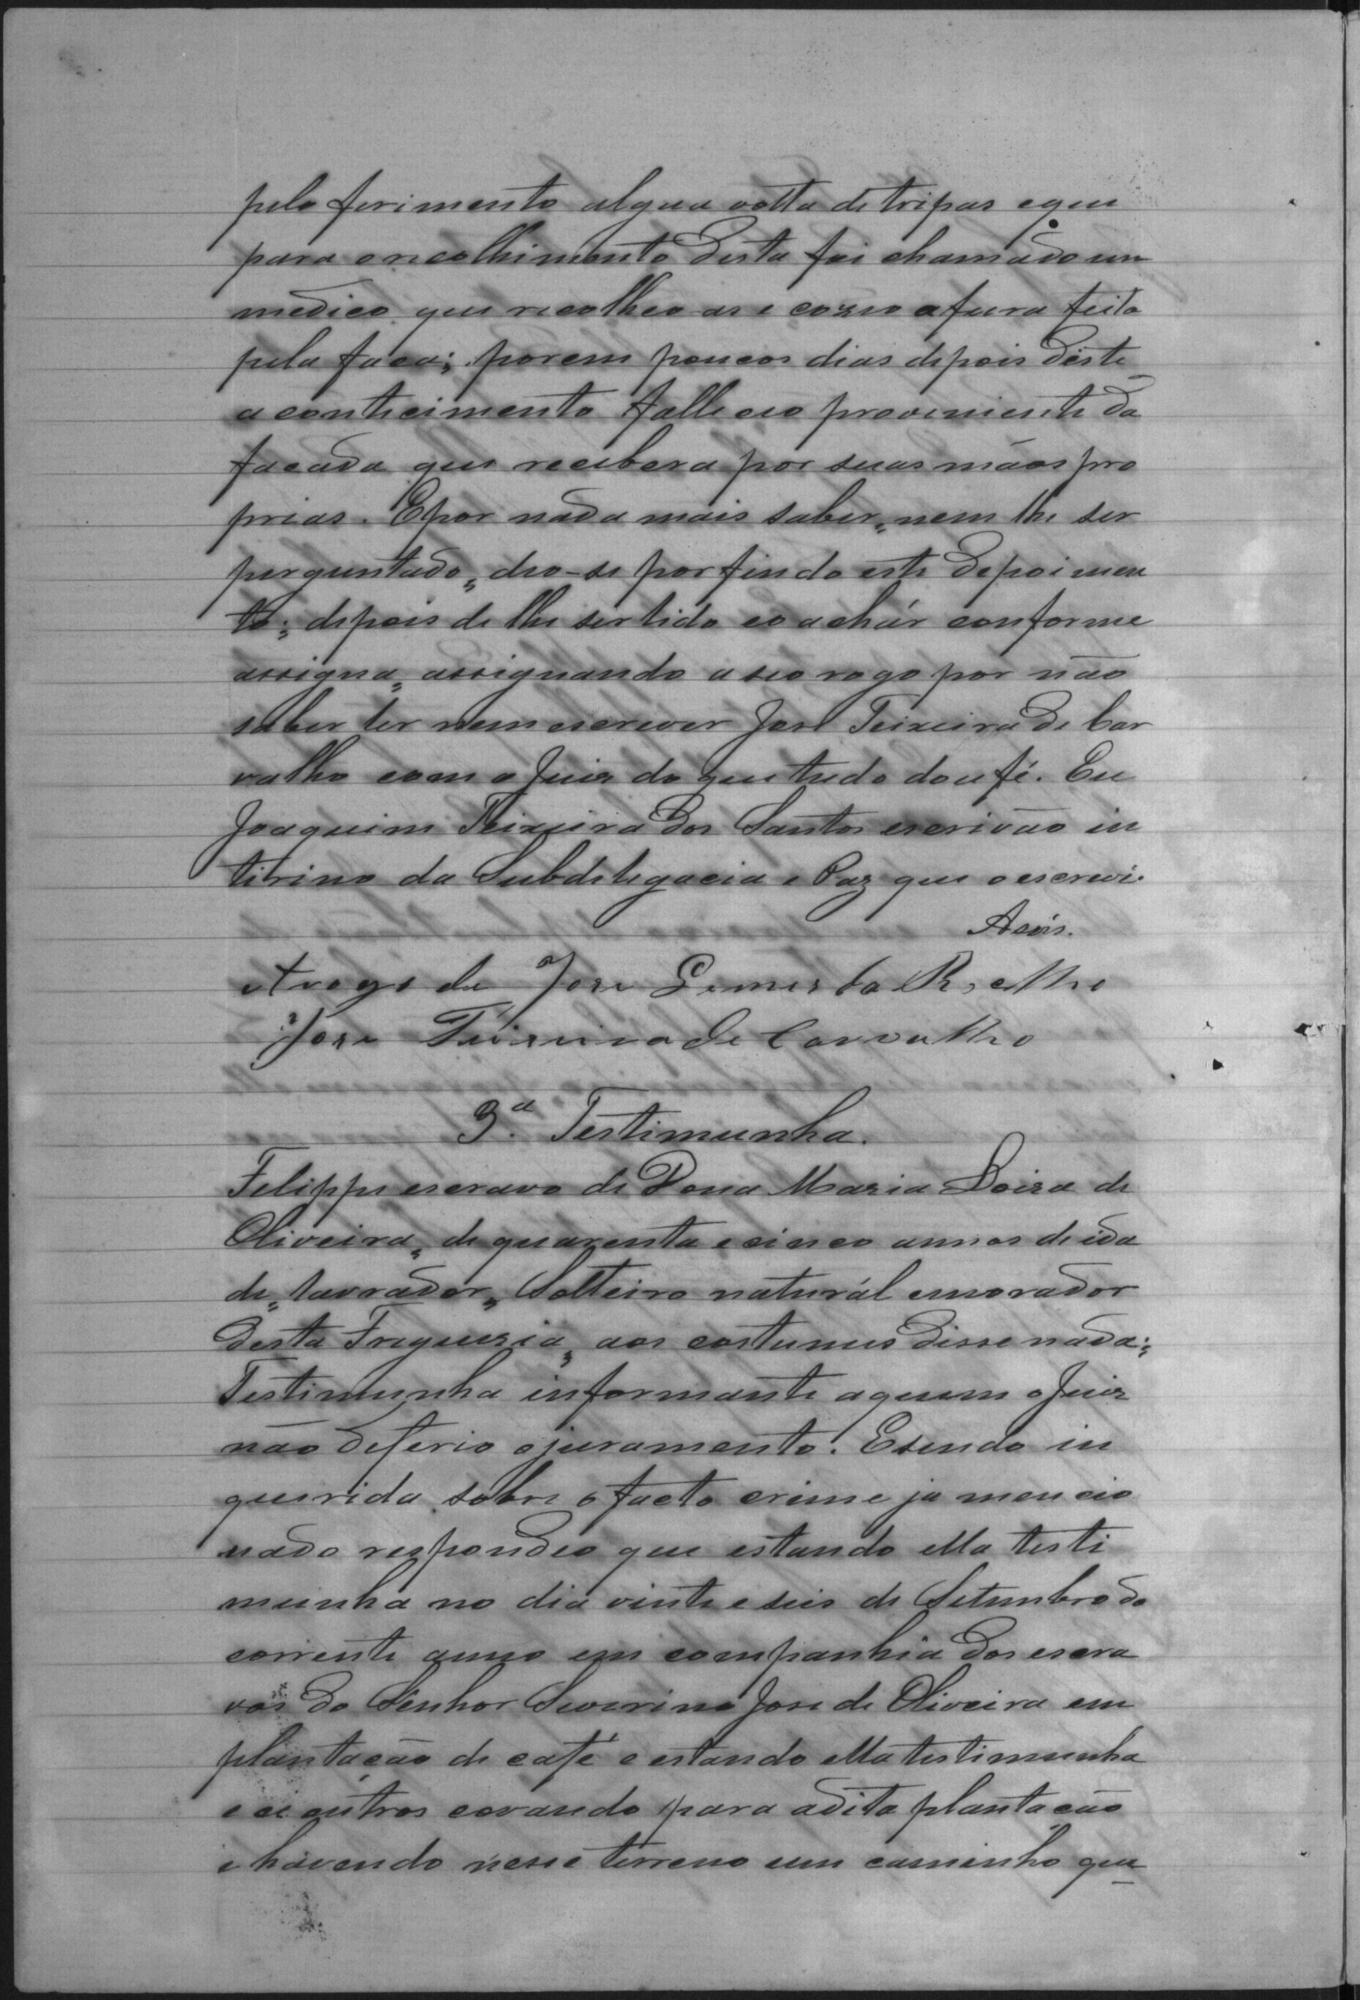 pelo ferimento algua volta de tripas e que
para o recolhimento desta foi chamado um
medico que recolheo-as e cozeo a fura feita
pela faca; porem poucos dias depois deste
acontecimento falleceo proveniente da
facada que recebera por suas mãos pro
prias. E por nada mais saber, nem lhe ser
perguntado, deo-se por findo este depoimen
to; depois de lhe ser lido e o achár conforme
assigna, assignando a seo rogo por não
saber ler nem escrever José Teixeira de Car
valho com o Juiz do que tudo dou fé. Eu
Joaquim Teixeira dos Santos escrivão in
tirino da Subdelegacia e Paz que o escrevi.
Assis.
A rogo de Jose Lemes da
Jose Teixeira de Carvalho
3.ª Testimunha.
Felippe escravo de Dona Maria Loiza de
Oliveira, de quarenta e cinco annos de ida
de, lavrador, Solteiro natural e morador
desta Freguezia, aos costumes disse nada;
Testimunha informante a quem o Juiz
não deferio o juramento. E sendo in
querida sobre o facto crime ja mencio
nado respondeo que estando ella testi
munha no dia vinte e seis de Setembro do
corrente anno em companhia dos escra
vos do Senhor Severino Jose de Oliveira em
plantação de café e estando ella testimunha
e os outros covando para a dita plantação
e havendo nesse terreno um caminho que